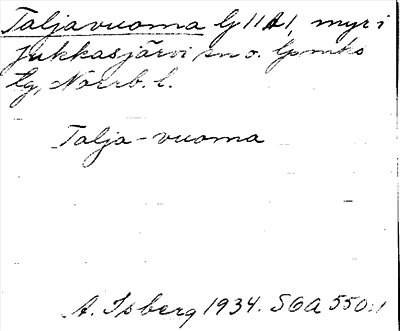 Taljavuoma lj 11 A1, myr i
Jukkasjärvi sn o. lpmks
tg, Norrb. l.
Talja-vuoma
A. Isberg 1934. SOA 550:1